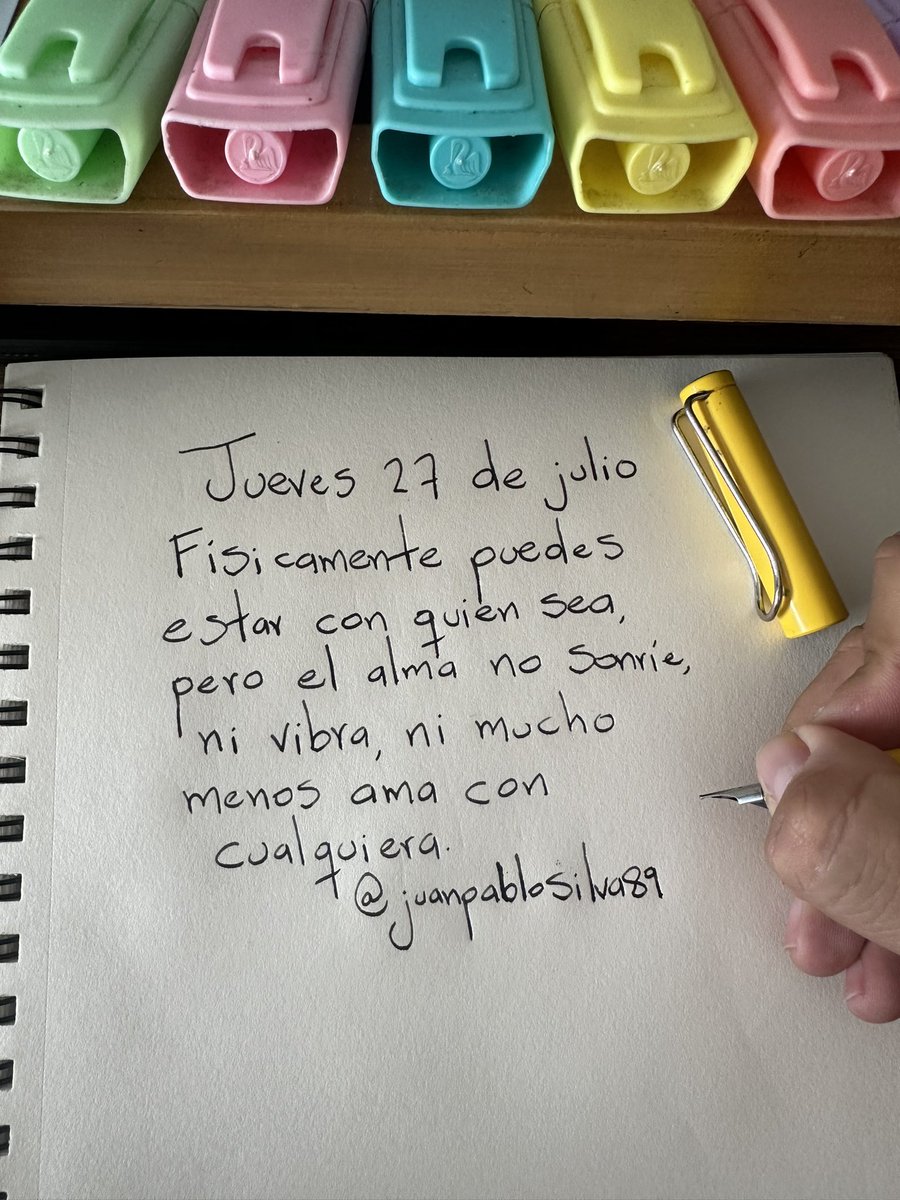 Jueves 27 de julio
Físicamente puedes
estar con quien sea,
pero el alma no sonríe,
ni vibra, ni mucho
menos ama con
cualquiera.
@juanpablosilva89